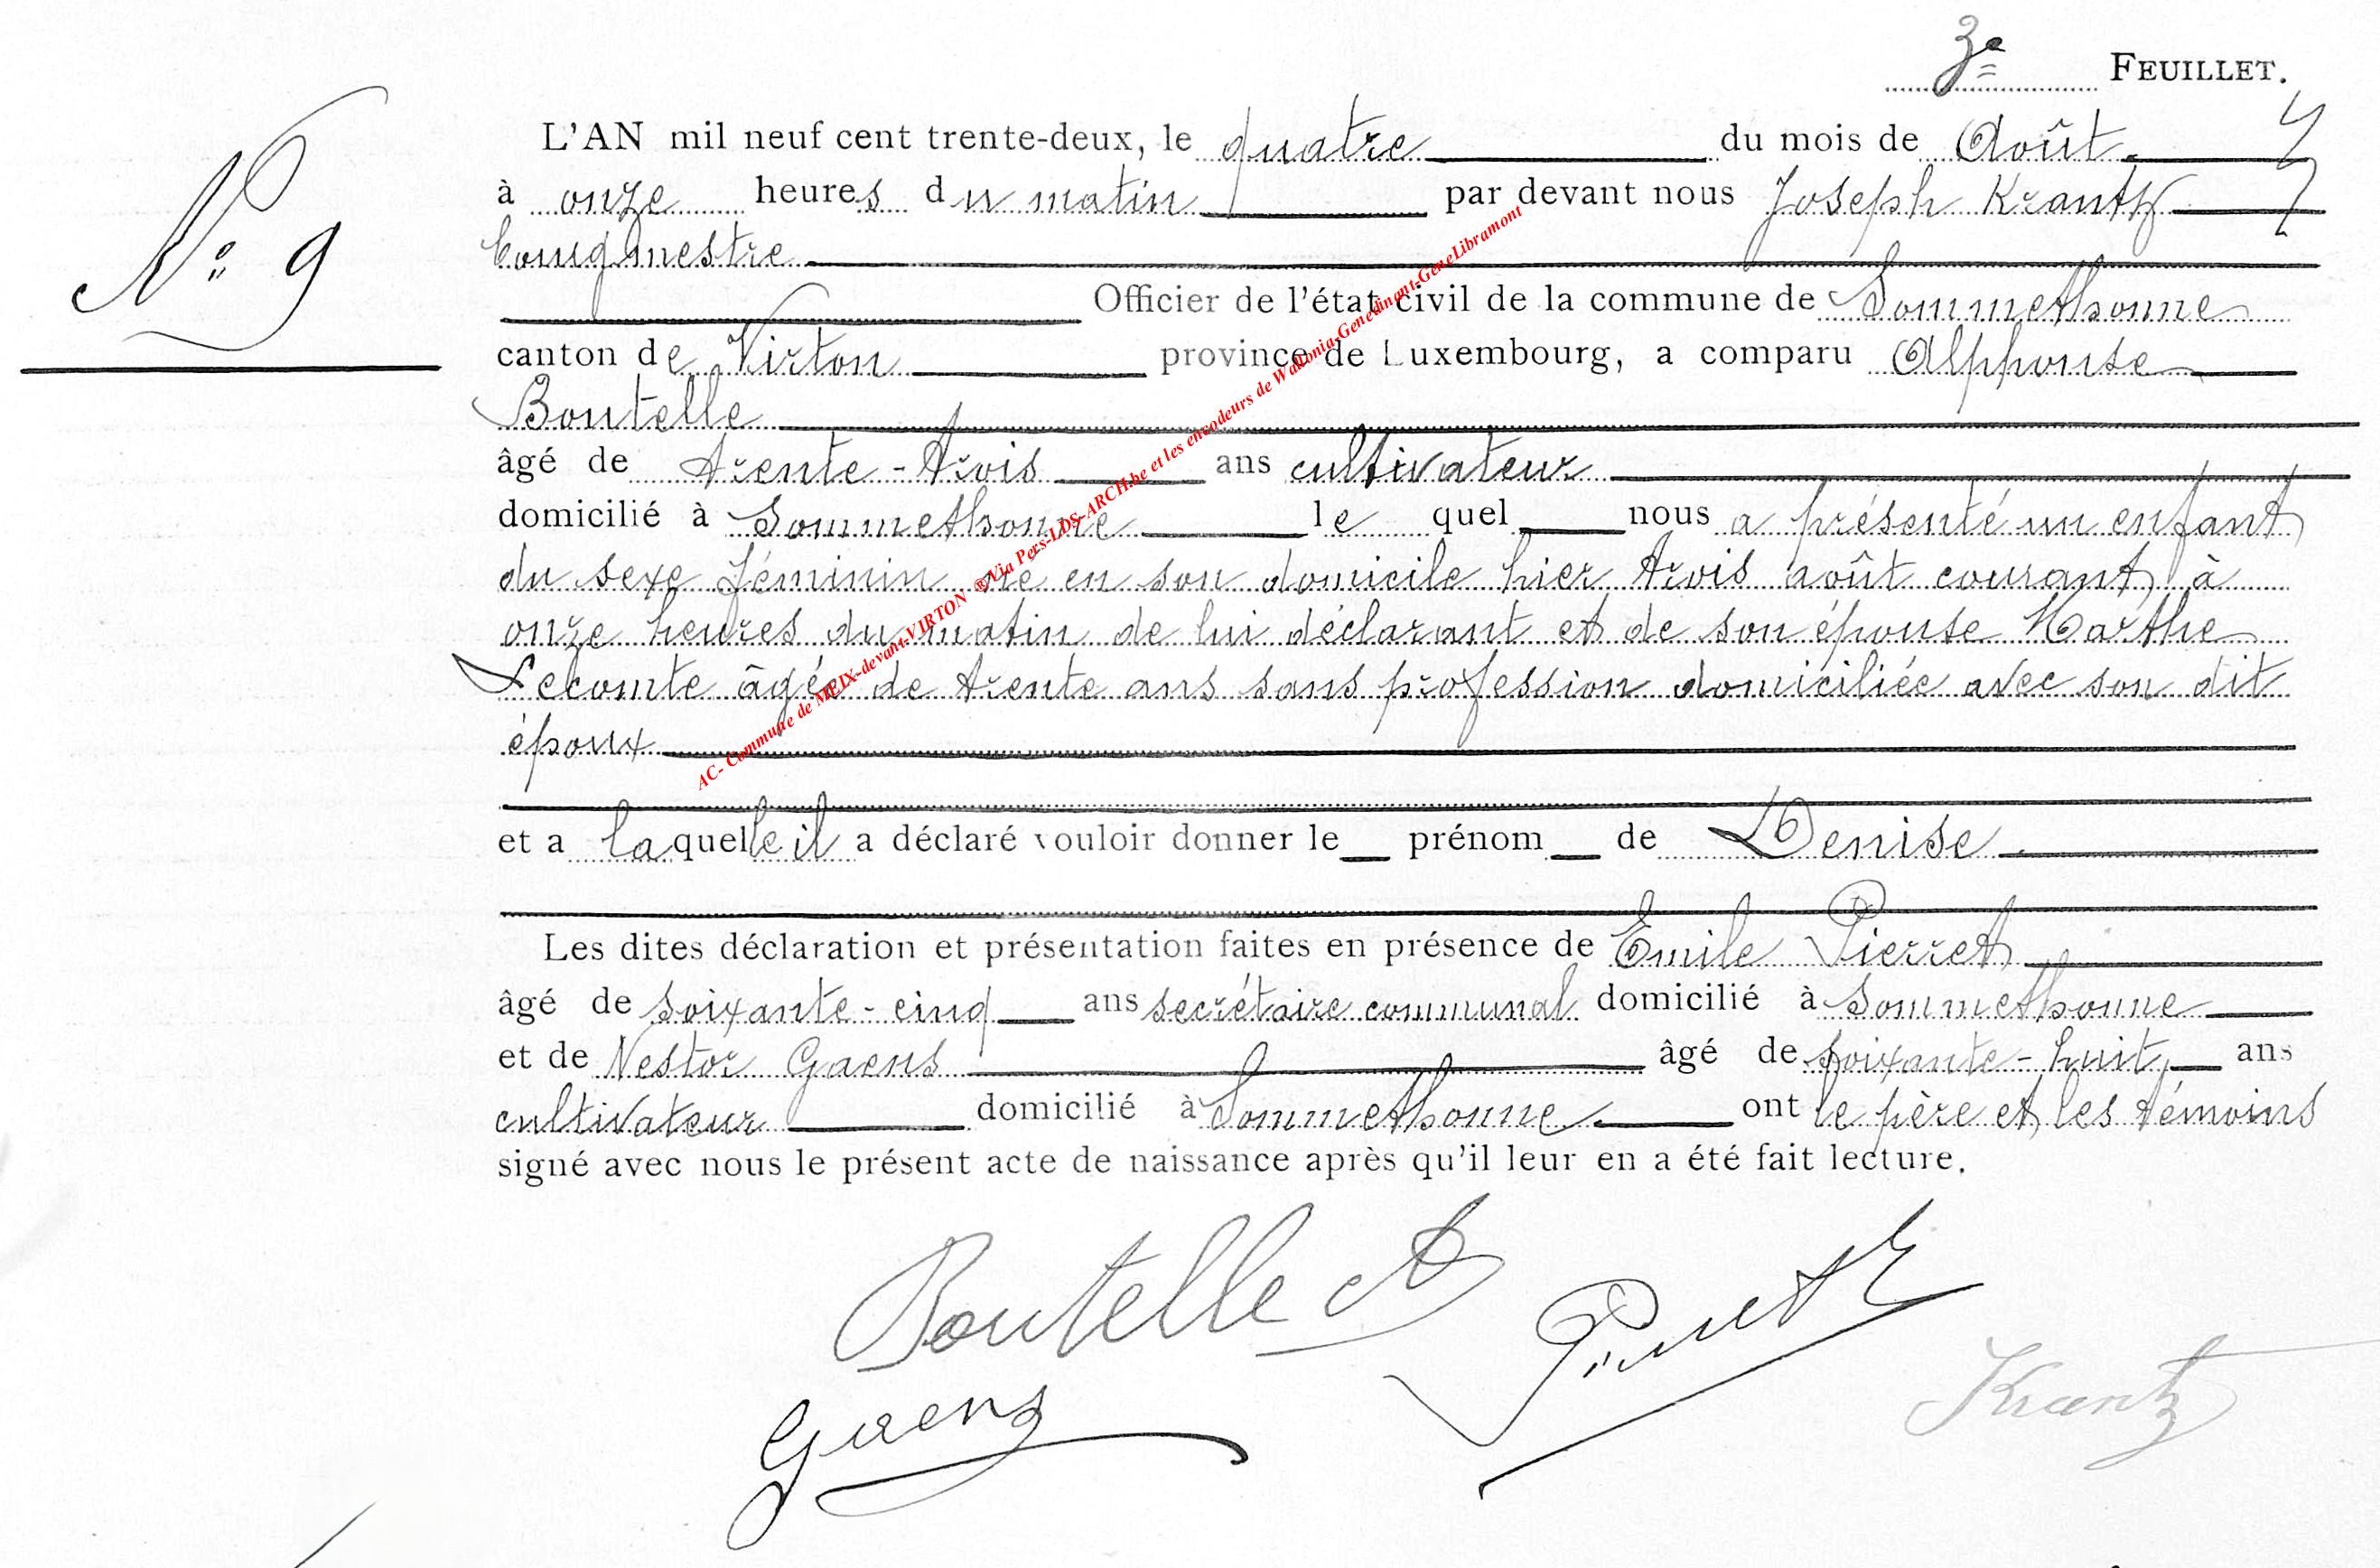 3e FEUILLET.
L'AN mil neuf cent trente-deux, le quatre du mois de Août
à onze heures du matin par devant nous Joseph Krantz
bourgmestre
Nº 9
Officier de l'état civil de la commune de Sommethonne
canton de Virton province de Luxembourg, a comparu Alphonse
Boutelle
âgé de trente-trois ans cultivateur
domicilié à Sommethonne lequel nous a présenté un enfant
du sexe féminin né en son domicile hier trois août courant à
onze heures du matin de lui déclarant et de son épouse Marthe
Lecomte âgée de trente ans sans profession domiciliée avec son dit
époux
AC- Commune de MEIX-devant-VIRTON ©Via Pers-LDS-ARCH.be et les encodeurs de Wallonia-Genedinant-GeneLibramont
et a laquelle il a déclaré vouloir donner le prénom de Denise
Les dites déclaration et présentation faites en présence de Emile Pierret
âgé de soixante-cinq ans secrétaire communal domicilié à Sommethonne
et de Nestor Gaens âgé de soixante-huit ans
cultivateur domicilié à Sommethonne. ont le père et les témoins
signé avec nous le présent acte de naissance après qu'il leur en a été fait lecture.
Boutelle A
Pierret
Krantz
Gaens